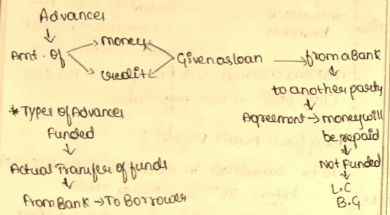 Advances
Amt. Of → money
→ credit
Given as loan → from a Bank
to another party
Agreement → money will be repaid
Not Funded
L.C
B.G
* Types Of Advances
Funded
Actual Transfer of funds
From Bank → To Borrower